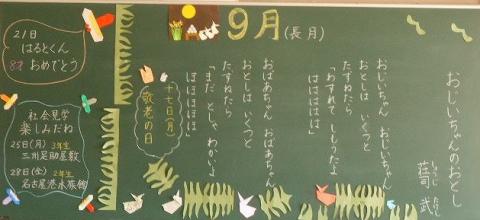 9月(長月)
おじいちゃんのおとし
荘司 武
しょうじ たけし
おじいちゃん おじいちゃん
おとしは いくつと
たずねたら
「わすれて しもうたよ」
はははははは
おばあちゃん おばあちゃん
おとしは いくつと
たずねたら
「まだ としゃ わかいよ」
ほほほほほほ
十七日(月)
敬老の日
21日
はるとくん
8才 おめでとう
社会見学
楽しみだね
25日(月) 3年生
三州足助屋敷
28日(金) 2年生
名古屋港水族館